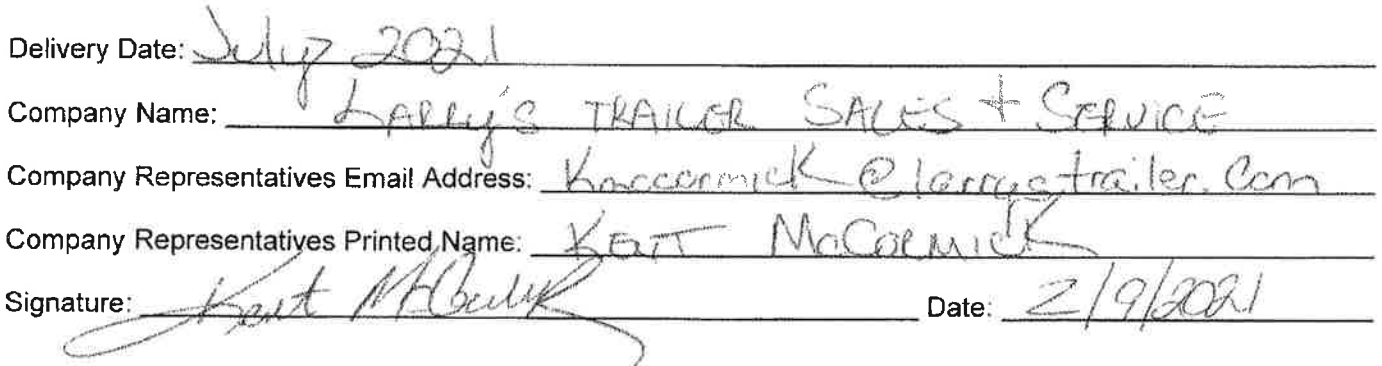 Delivery Date: July 2021
Company Name: LARRY'S TRAILER SALES + SERVICE
Company Representatives Email Address: Kmccormick@larrystrailer.com
Company Representatives Printed Name: KENT McCORMICK
Signature: Kent McCormick Date: 2/9/2021